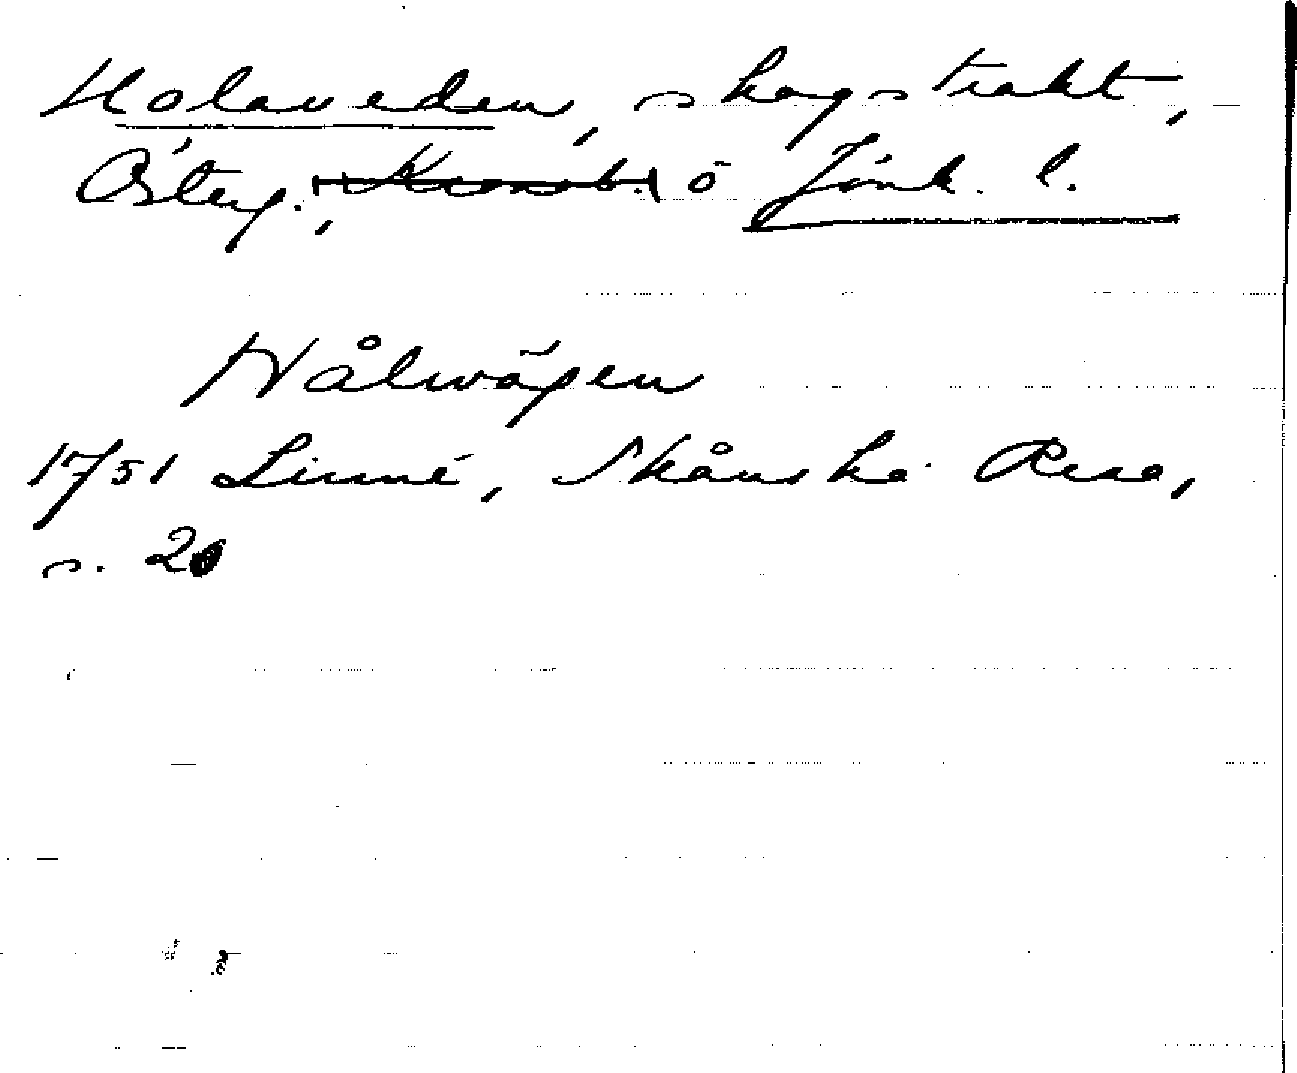 Holaveden, skogstrakt,
Österg., Kronob. o Jönk. l.
Hålwägen
1751 Linné, Skånska Resa,
s. 20